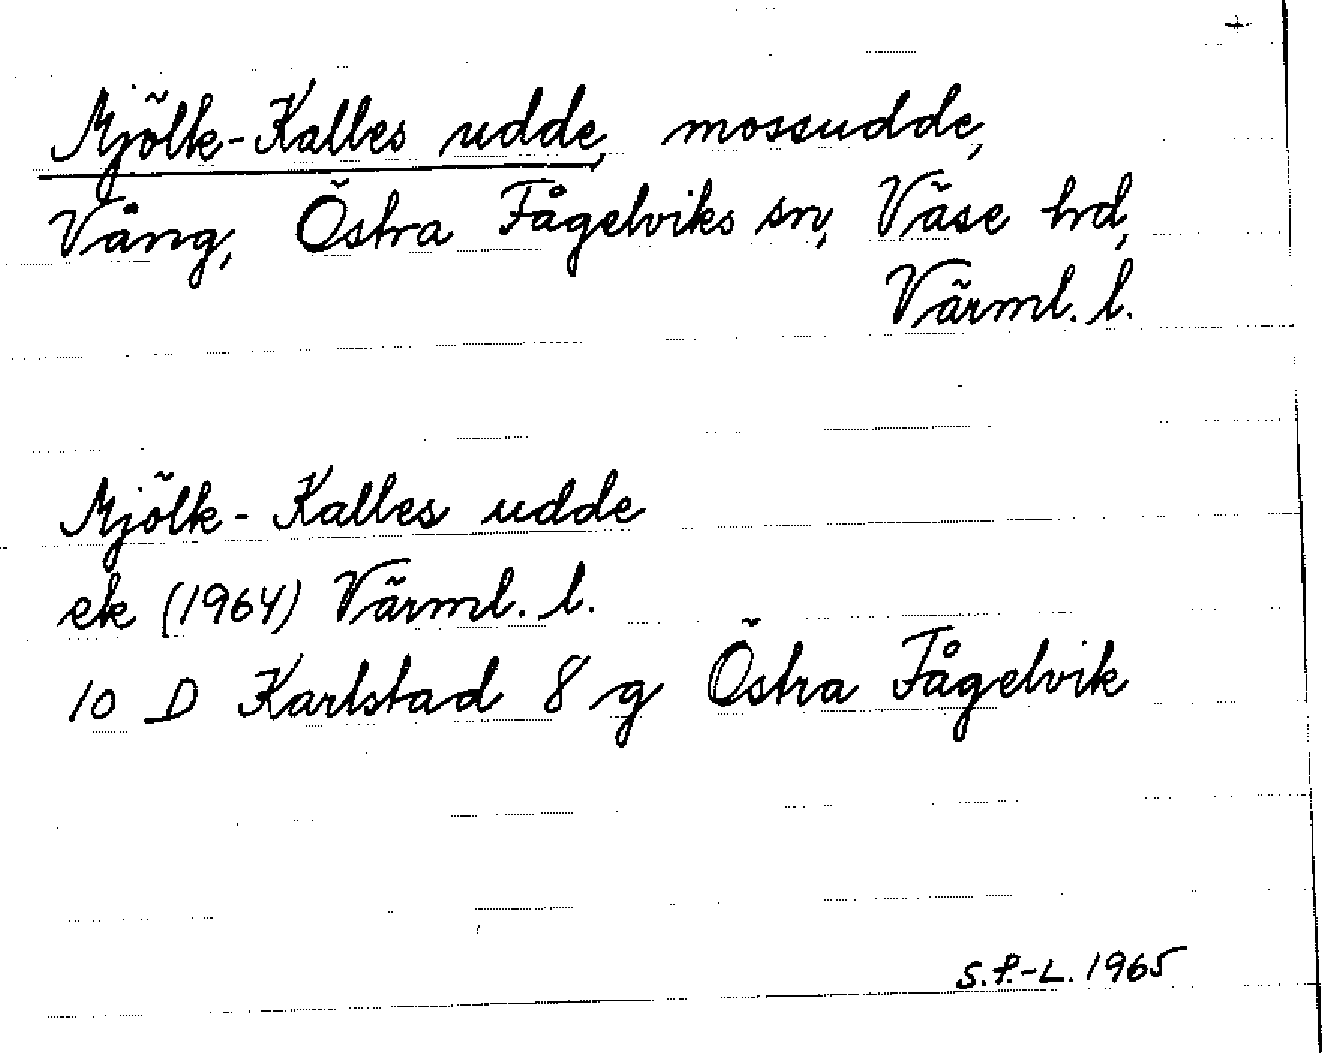 +
Mjölk-Kalles udde, mossudde,
Vång, Östra Fågelviks sn, Väse hd,
Värml. l.
Mjölk-Kalles udde
ek (1964) Värml. l.
10 D Karlstad 8 g Östra Fågelvik
S.P.-L. 1965